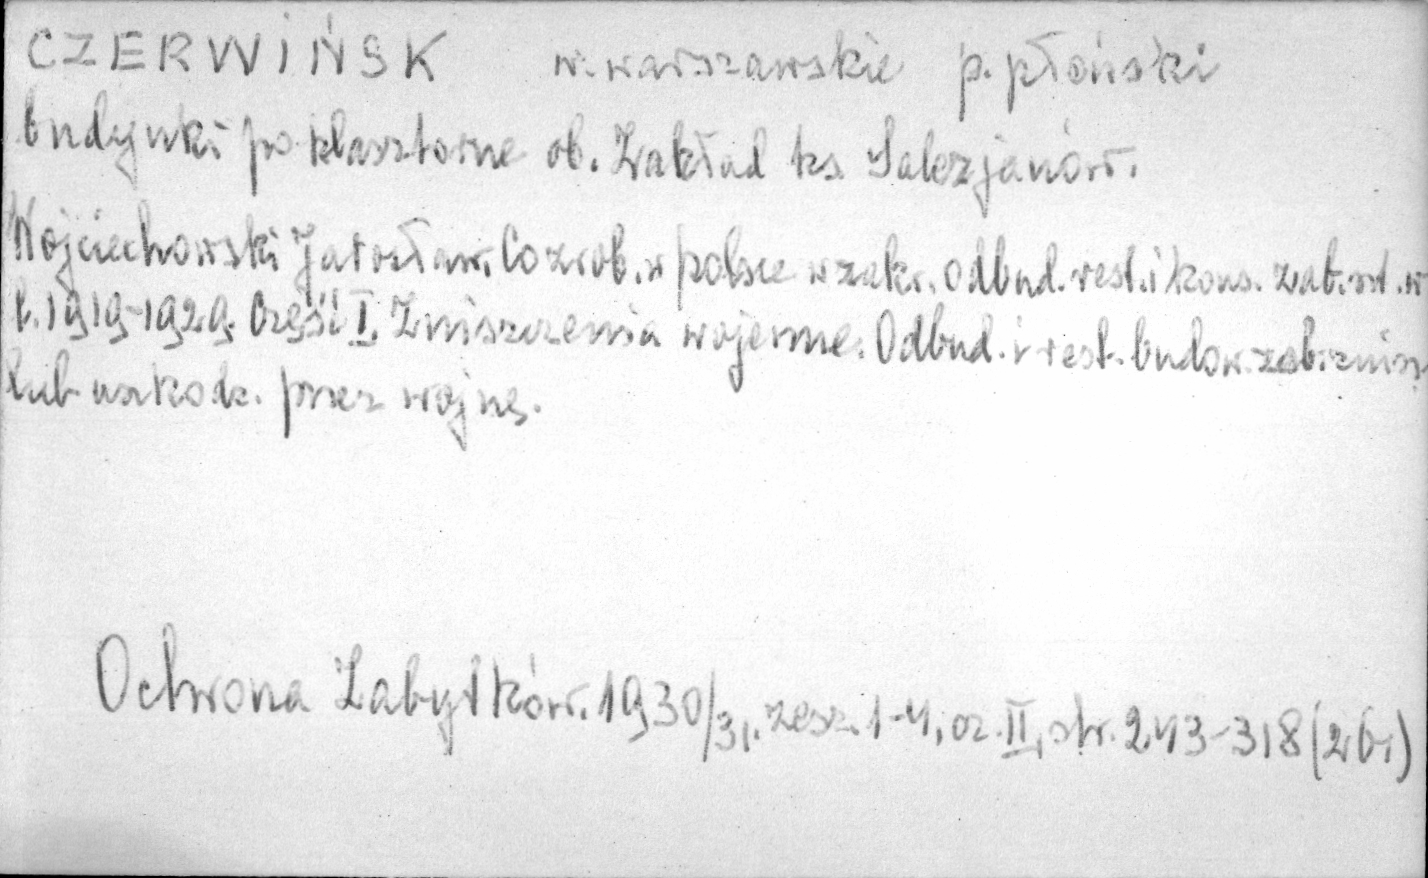 CZERWIŃSK w. warszawskie p. płoński
budynki poklasztorne ob. Zakład ks. Salezjanów.
Wojciechowski Jarosław. Co zrob. w polsce w zakr. odbud. rest. i kons. zab. szt. w
l. 1919-1929. Część I. Zniszczenia wojenne. Odbud. i rest. budow. zab. znisz
lub uszkodz. przez wojnę.
Ochrona Zabytków. 1930/31. zesz. 1-4, cz. II, str. 243-318 (261)